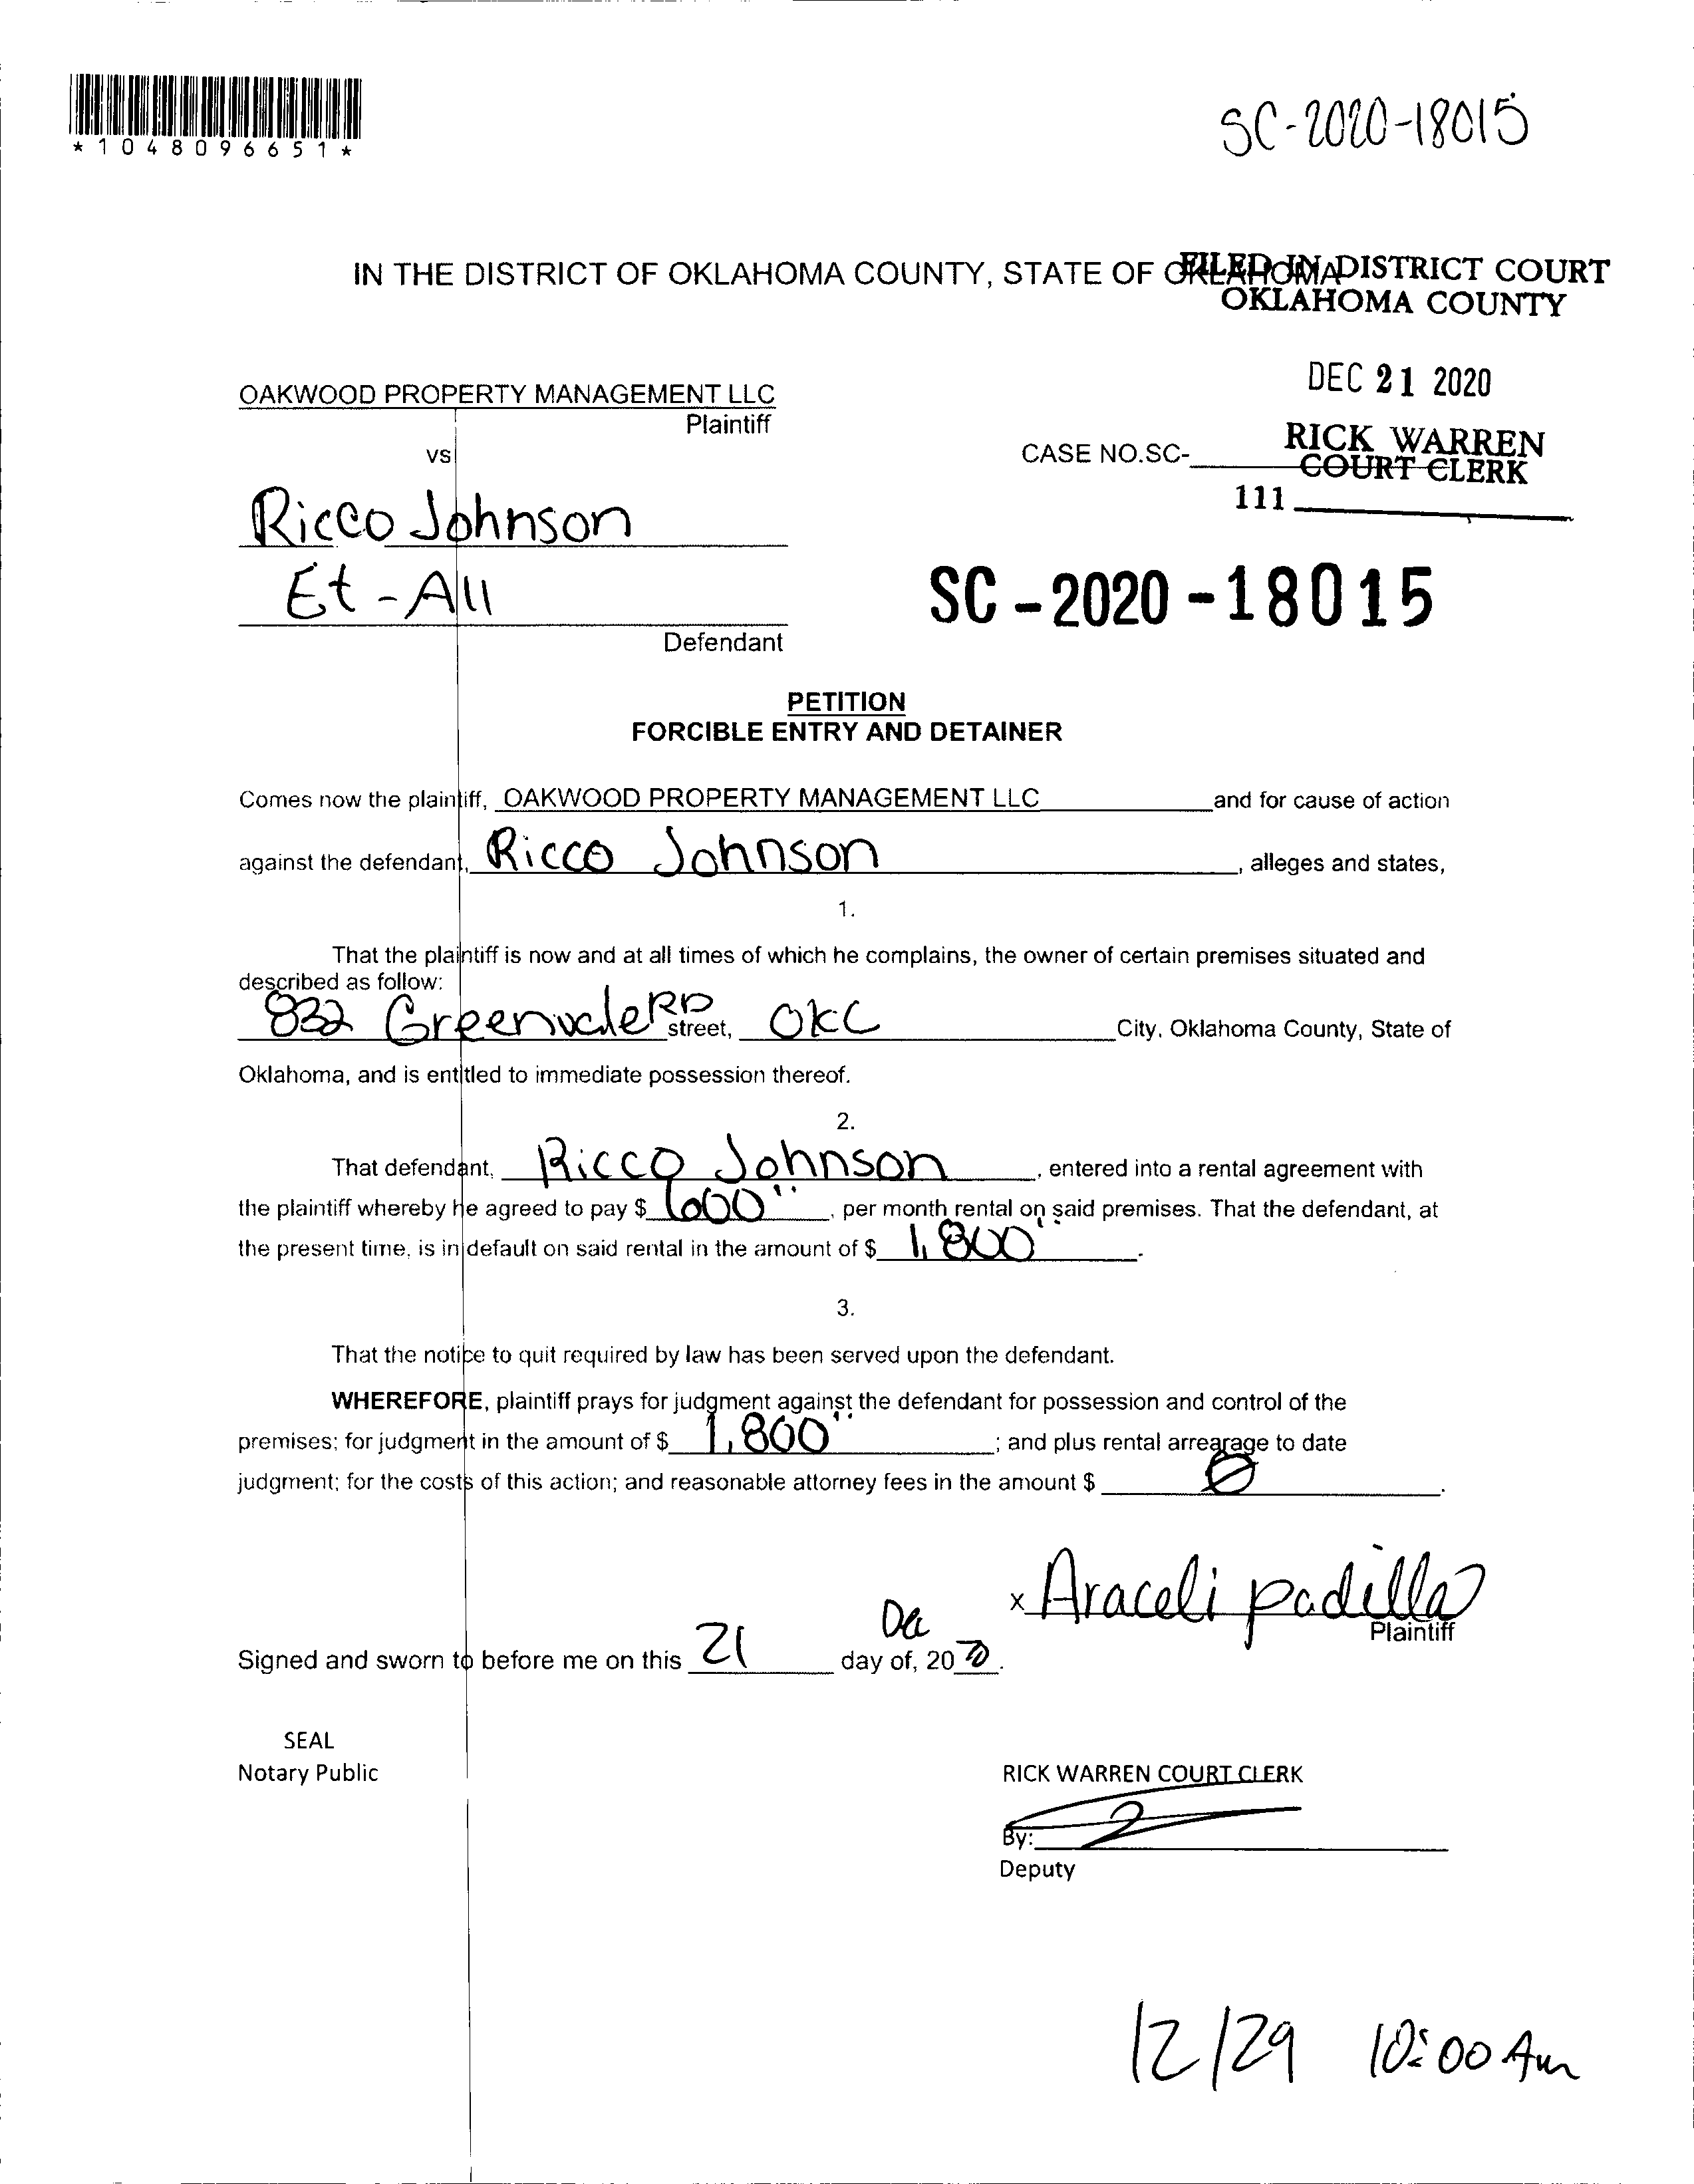 *1048096651*
SC-2020-18015
IN THE DISTRICT OF OKLAHOMA COUNTY, STATE OF OKLAHOMA
FILED IN DISTRICT COURT
OKLAHOMA COUNTY
DEC 21 2020
OAKWOOD PROPERTY MANAGEMENT LLC
Plaintiff
RICK WARREN
vs
CASE NO.SC-
COURT CLERK
111
Ricco Johnson
Et-All
SC-2020-18015
Defendant
PETITION
FORCIBLE ENTRY AND DETAINER
Comes now the plaintiff, OAKWOOD PROPERTY MANAGEMENT LLC and for cause of action
against the defendant, Ricco Johnson, alleges and states,
1.
That the plaintiff is now and at all times of which he complains, the owner of certain premises situated and
described as follow:
832 Greenvale RD street, OKC City, Oklahoma County, State of
Oklahoma, and is entitled to immediate possession thereof.
2.
That defendant, Ricco Johnson, entered into a rental agreement with
the plaintiff whereby he agreed to pay $ 600, per month rental on said premises. That the defendant, at
the present time, is in default on said rental in the amount of $ 1,800.
3.
That the notice to quit required by law has been served upon the defendant.
WHEREFORE, plaintiff prays for judgment against the defendant for possession and control of the
premises; for judgment in the amount of $ 1,800; and plus rental arrearage to date
judgment; for the costs of this action; and reasonable attorney fees in the amount $ 0.
x Araceli padilla
Plaintiff
Signed and sworn to before me on this 21 day of, Dec 2020.
SEAL
Notary Public
RICK WARREN COURT CLERK
By:
Deputy
12/29 10:00 Am